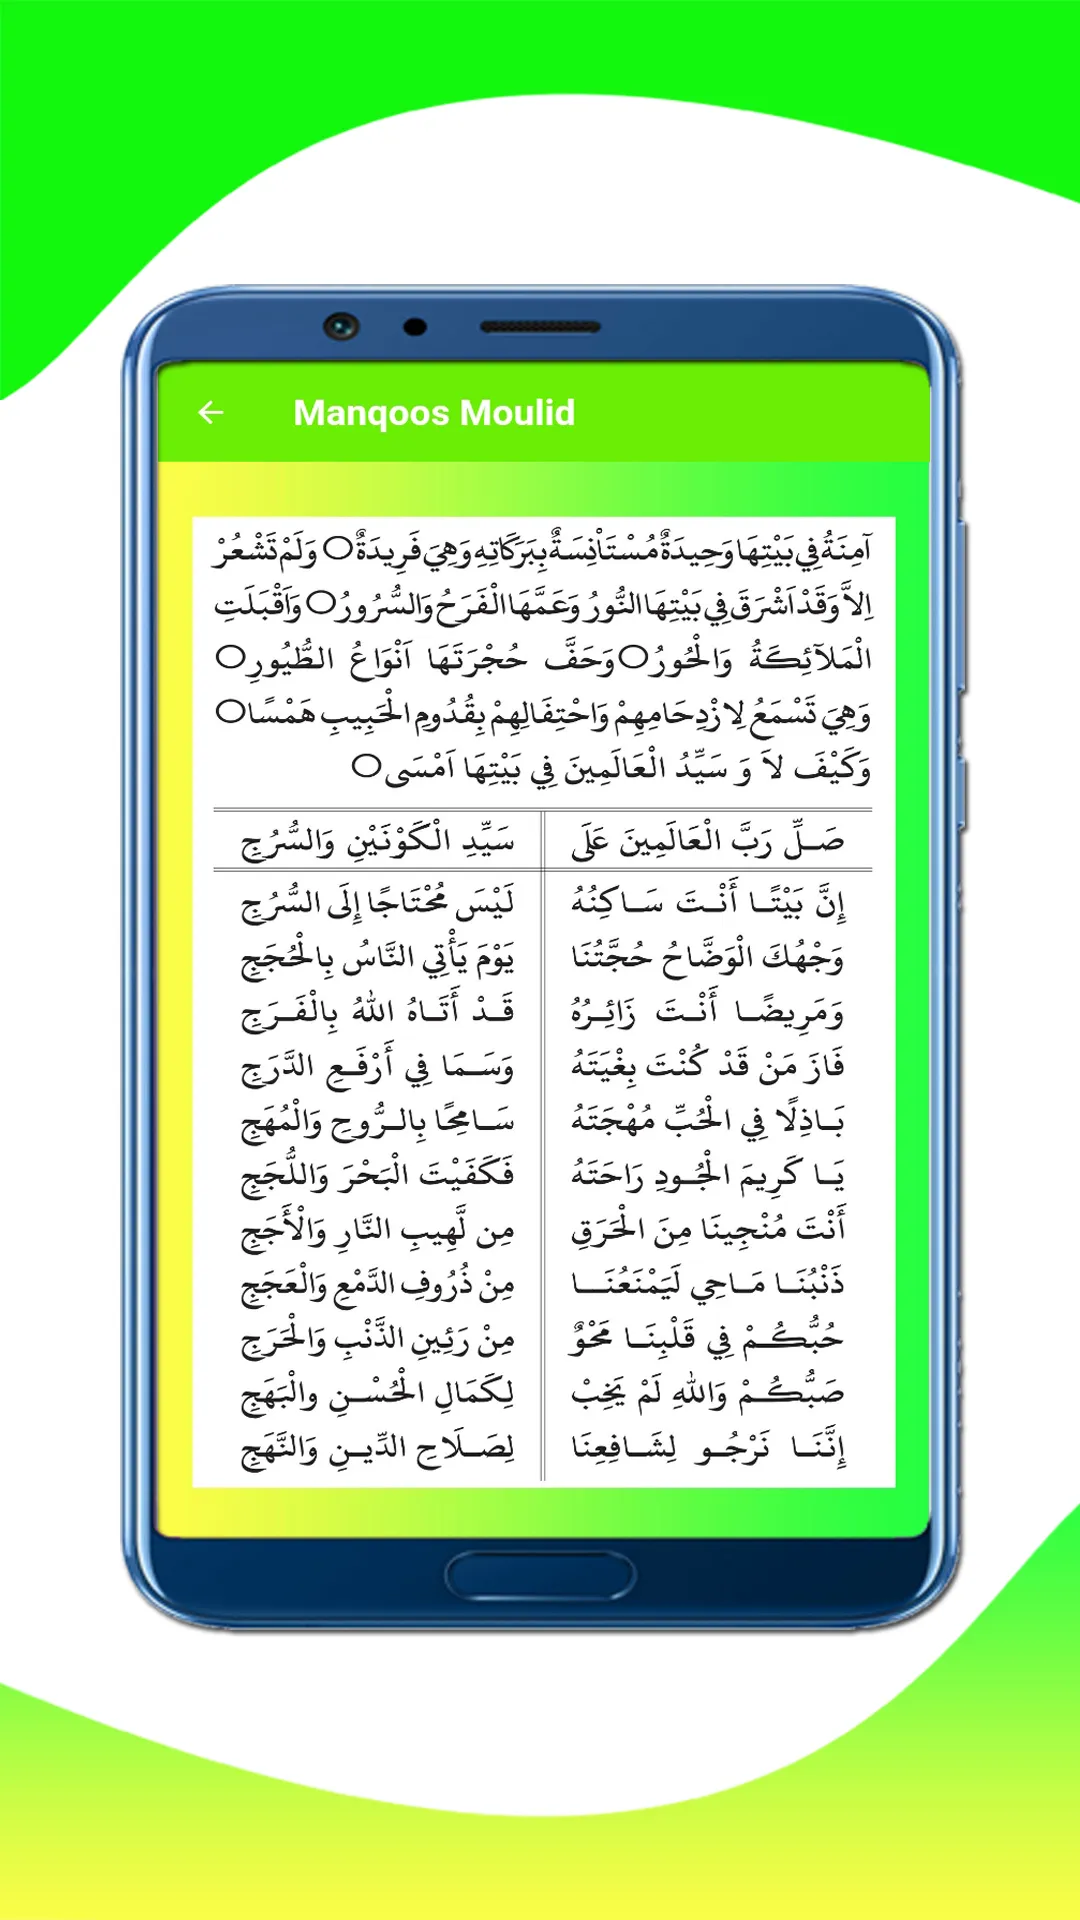 Manqoos Moulid
آمِنَةُ فِي بَيْتِهَا وَحِيدَةٌ مُسْتَأْنِسَةٌ بِبَرَكَاتِهِ وَهِيَ فَرِيدَةٌ ○ وَلَمْ تَشْعُرْ
اِلاَّ وَقَدْ اَشْرَقَ فِي بَيْتِهَا النُّورُ وَعَمَّهَا الْفَرَحُ وَالسُّرُورُ ○ وَاَقْبَلَتِ
الْمَلآئِكَةُ وَالْحُورُ ○ وَحَفَّ حُجْرَتَهَا اَنْوَاعُ الطُّيُورِ ○
وَهِيَ تَسْمَعُ لِازْدِحَامِهِمْ وَاحْتِفَالِهِمْ بِقُدُومِ الْحَبِيبِ هَمْسًا ○
وَكَيْفَ لاَ وَ سَيِّدُ الْعَالَمِينَ فِي بَيْتِهَا اَمْسَى ○
صَلِّ رَبَّ الْعَالَمِينَ عَلَى سَيِّدِ الْكَوْنَيْنِ وَالسُّرُجِ
إِنَّ بَيْتًا أَنْتَ سَاكِنُهُ لَيْسَ مُحْتَاجًا إِلَى السُّرُجِ
وَجْهُكَ الْوَضَّاحُ حُجَّتُنَا يَوْمَ يَأْتِي النَّاسُ بِالْحُجَجِ
وَمَرِيضًا أَنْتَ زَائِرُهُ قَدْ أَتَاهُ اللهُ بِالْفَرَجِ
فَازَ مَنْ قَدْ كُنْتَ بِغْيَتَهُ وَسَمَا فِي أَرْفَعِ الدَّرَجِ
بَاذِلًا فِي الْحُبِّ مُهْجَتَهُ سَامِحًا بِالرُّوحِ وَالْمُهَجِ
يَا كَرِيمَ الْجُودِ رَاحَتَهُ فَكَفَيْتَ الْبَحْرَ وَاللُّجَجِ
أَنْتَ مُنْجِينَا مِنَ الْحَرَقِ مِن لَّهِيبِ النَّارِ وَالْأَجَجِ
ذَنْبُنَا مَاحِي لَيَمْنَعُنَا مِنْ ذُرُوفِ الدَّمْعِ وَالْعَجَجِ
حُبُّكُمْ فِي قَلْبِنَا مَحْوٌ مِنْ رَئِينِ الذَّنْبِ وَالْحَرَجِ
صَبُّكُمْ وَاللهِ لَمْ يَخِبْ لِكَمَالِ الْحُسْنِ والْبَهَجِ
إِنَّنَا نَرْجُو لِشَافِعِنَا لِصَلَاحِ الدِّينِ وَالنَّهَجِ